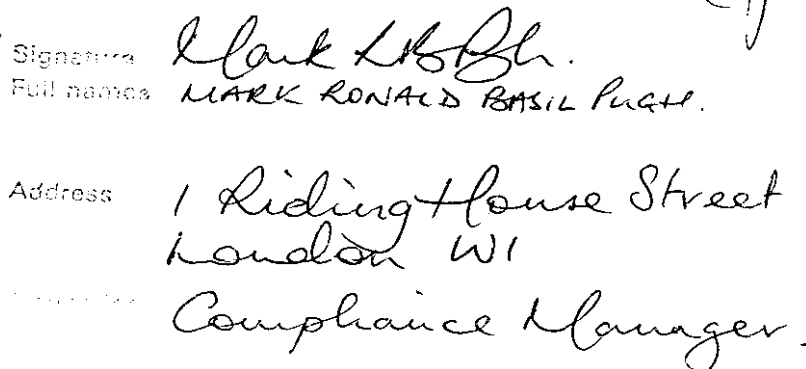 Signature Mark RB Pugh.
Full names MARK RONALD BASIL PUGH.
Address 1 Riding House Street
London W1
Compliance Manager.